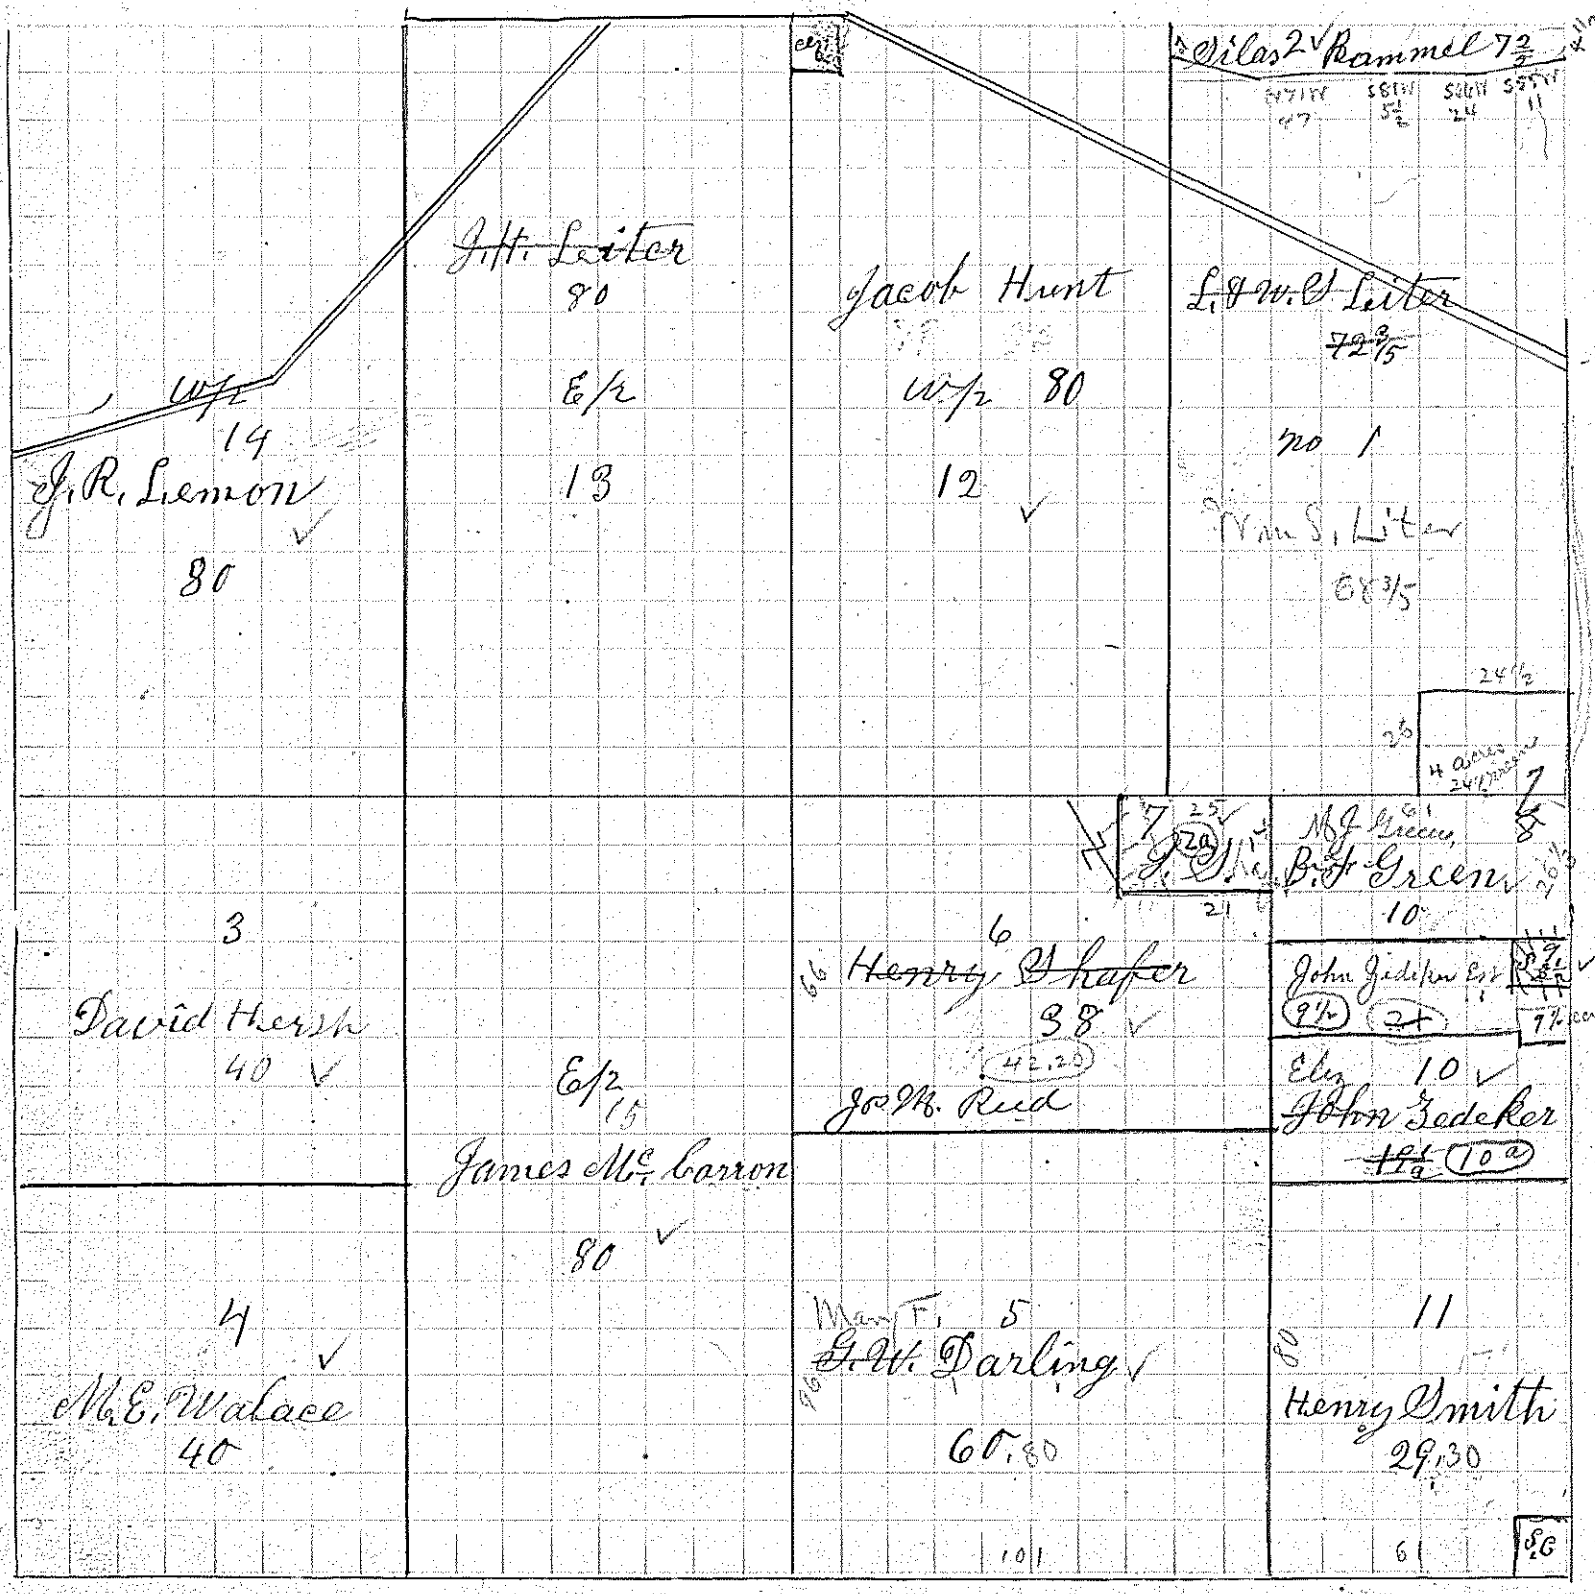 Silas 2 ✓ Rammel 7 2/5
N71W
47
S81W
5 1/2
S66W
24
S55W
11
J.H. Leiter
80
E/2
13
Jacob Hunt
W/2 80
12
✓
L. & W. S Leiter
72 3/5
no 1
Wm S. Liter
68 3/5
W/2
14
J. R. Lemon
✓
80
24 1/2
26
4 acres
7
25 ✓
2a
21
M J Green
B. F. Green ✓
10
8
3
David Hersh
40 ✓
6
66
Henry Shafer
38 ✓
42.20
Jos M. Reed
John Zedeker Est
9 1/2
21
E/2
15
James Mc. Carron
80 ✓
Eliz 10 ✓
John Zedeker
19 1/2 10 a
4
✓
M. E. Walace
40
Mary F. 5
G. W. Darling ✓
96
60.80
101
11
80
Henry Smith
29.30
61